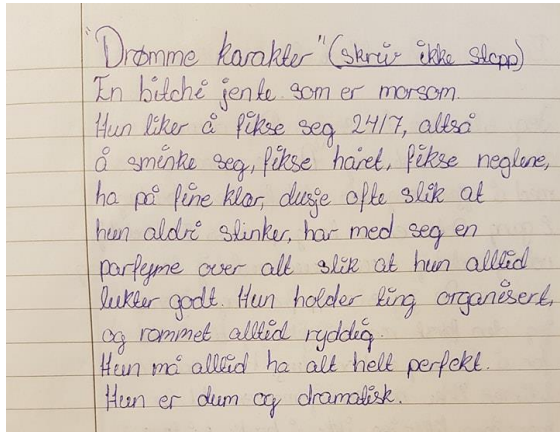 "Drømme karakter" (skriv ikke slapp)
En bitchi jente som er morsom.
Hun liker å fikse seg 24/7, altså
å sminke seg, fikse håret, fikse neglene,
ha på fine klær, dusje ofte slik at
hun aldri stinker, har med seg en
parfyme over alt slik at hun alltid
lukter godt. Hun holder ting organisert,
og rommet alltid ryddig.
Hun må alltid ha alt helt perfekt.
Hun er dum og dramatisk.